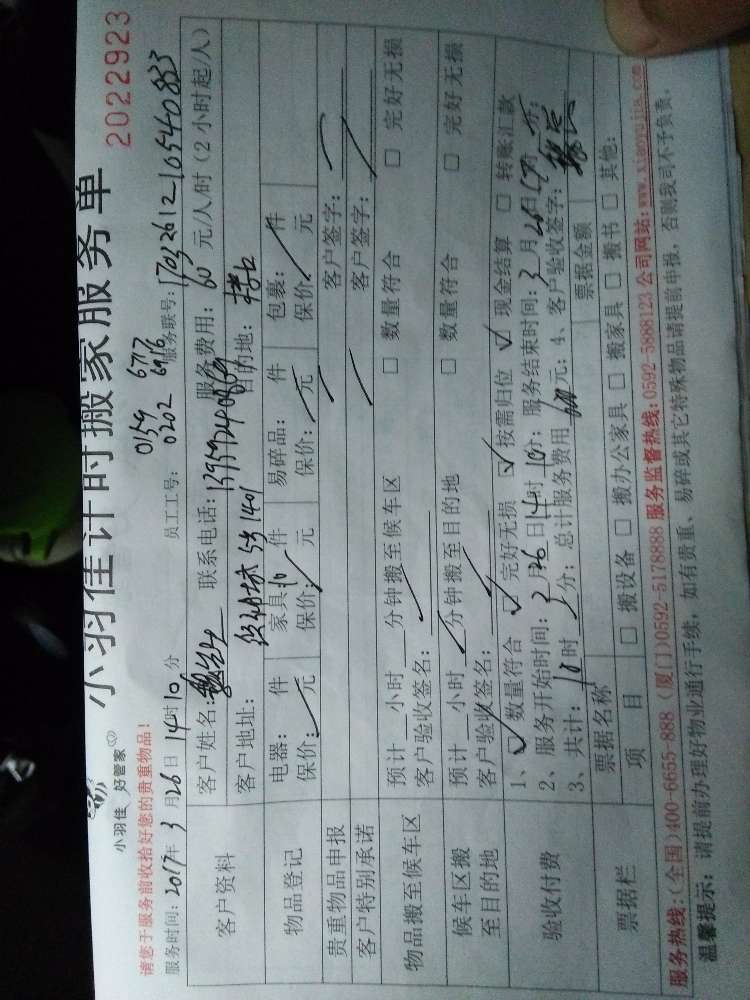 小羽佳 好管家
小羽佳计时搬家服务单
2022923
请您于服务前收拾好您的贵重物品!
服务时间: 2017年 3月 26日 14时 10分 员工工号: 0159 0202 6717 6916 服务联号: 1703261210540823
客户资料
客户姓名: 联系电话: 服务费用: 60 元/人/时 (2小时起/人)
客户地址: 目的地:
物品登记
电器: 件 家具: 10 件 易碎品: 件 包裹: 件
保价: 元 保价: 元 保价: 元 保价: 元
贵重物品申报 客户签字:
客户特别承诺 客户签字:
物品搬至候车区
预计 小时 分钟搬至候车区 □ 数量符合 □ 完好无损
客户验收签名:
候车区搬至目的地
预计 小时 分钟搬至目的地 □ 数量符合 □ 完好无损
客户验收签名:
验收付费
1、☑ 数量符合 ☑ 完好无损 ☑ 按需归位 ☑ 现金结算 □ 转账汇款
2、服务开始时间: 3月26日14时10分; 服务结束时间: 3月26日 时 分;
3、共计: 10时 分; 总计服务费用 元; 4、客户验收签字:
票据栏
票据名称 票据金额
项目 □ 搬设备 □ 搬办公家具 □ 搬家具 □ 搬书 □ 其他:
服务热线: (全国)400-6655-888 (厦门)0592-5178888 服务监督热线: 0592-5888123 公司网站: www.xiaoyujia.com
温馨提示: 请提前办理好物业通行手续, 如有贵重、易碎或其它特殊物品请提前申报, 否则我司不予负责。